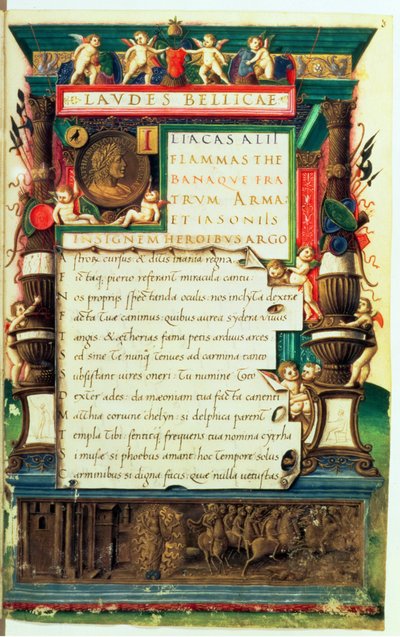 3
LAVDES BELLICAE
ILIACAS ALII
FLAMMAS THE
BANAQVE FRA
TRVM ARMA:
ET IASONIIS
INSIGNEM HEROIBVS ARGO
Astrorum cursus: & ditis inania regna.
Fictaq; pierio referant miracula cantu:
Nos proprijs spectanda oculis: nos inclyta dexteræ
Facta Tuæ canimus: quibus aurea sydera vivus
Tangis: & ætherias fama petis arduus arces
Sed sine Te nunq̃ tenues ad carmina tanto
Subsistant uires oneri: Tu numine Toto
Dexter ades: da mæoniam tua facta canenti
Matthia coruine chelyn: si delphica parent
Templa Tibi: sentitq; frequens tua nomina cyrrha
Si musæ si phoebus amant: hoc Tempore solus
Carminibus si digna facis: quæ nulla uetustas